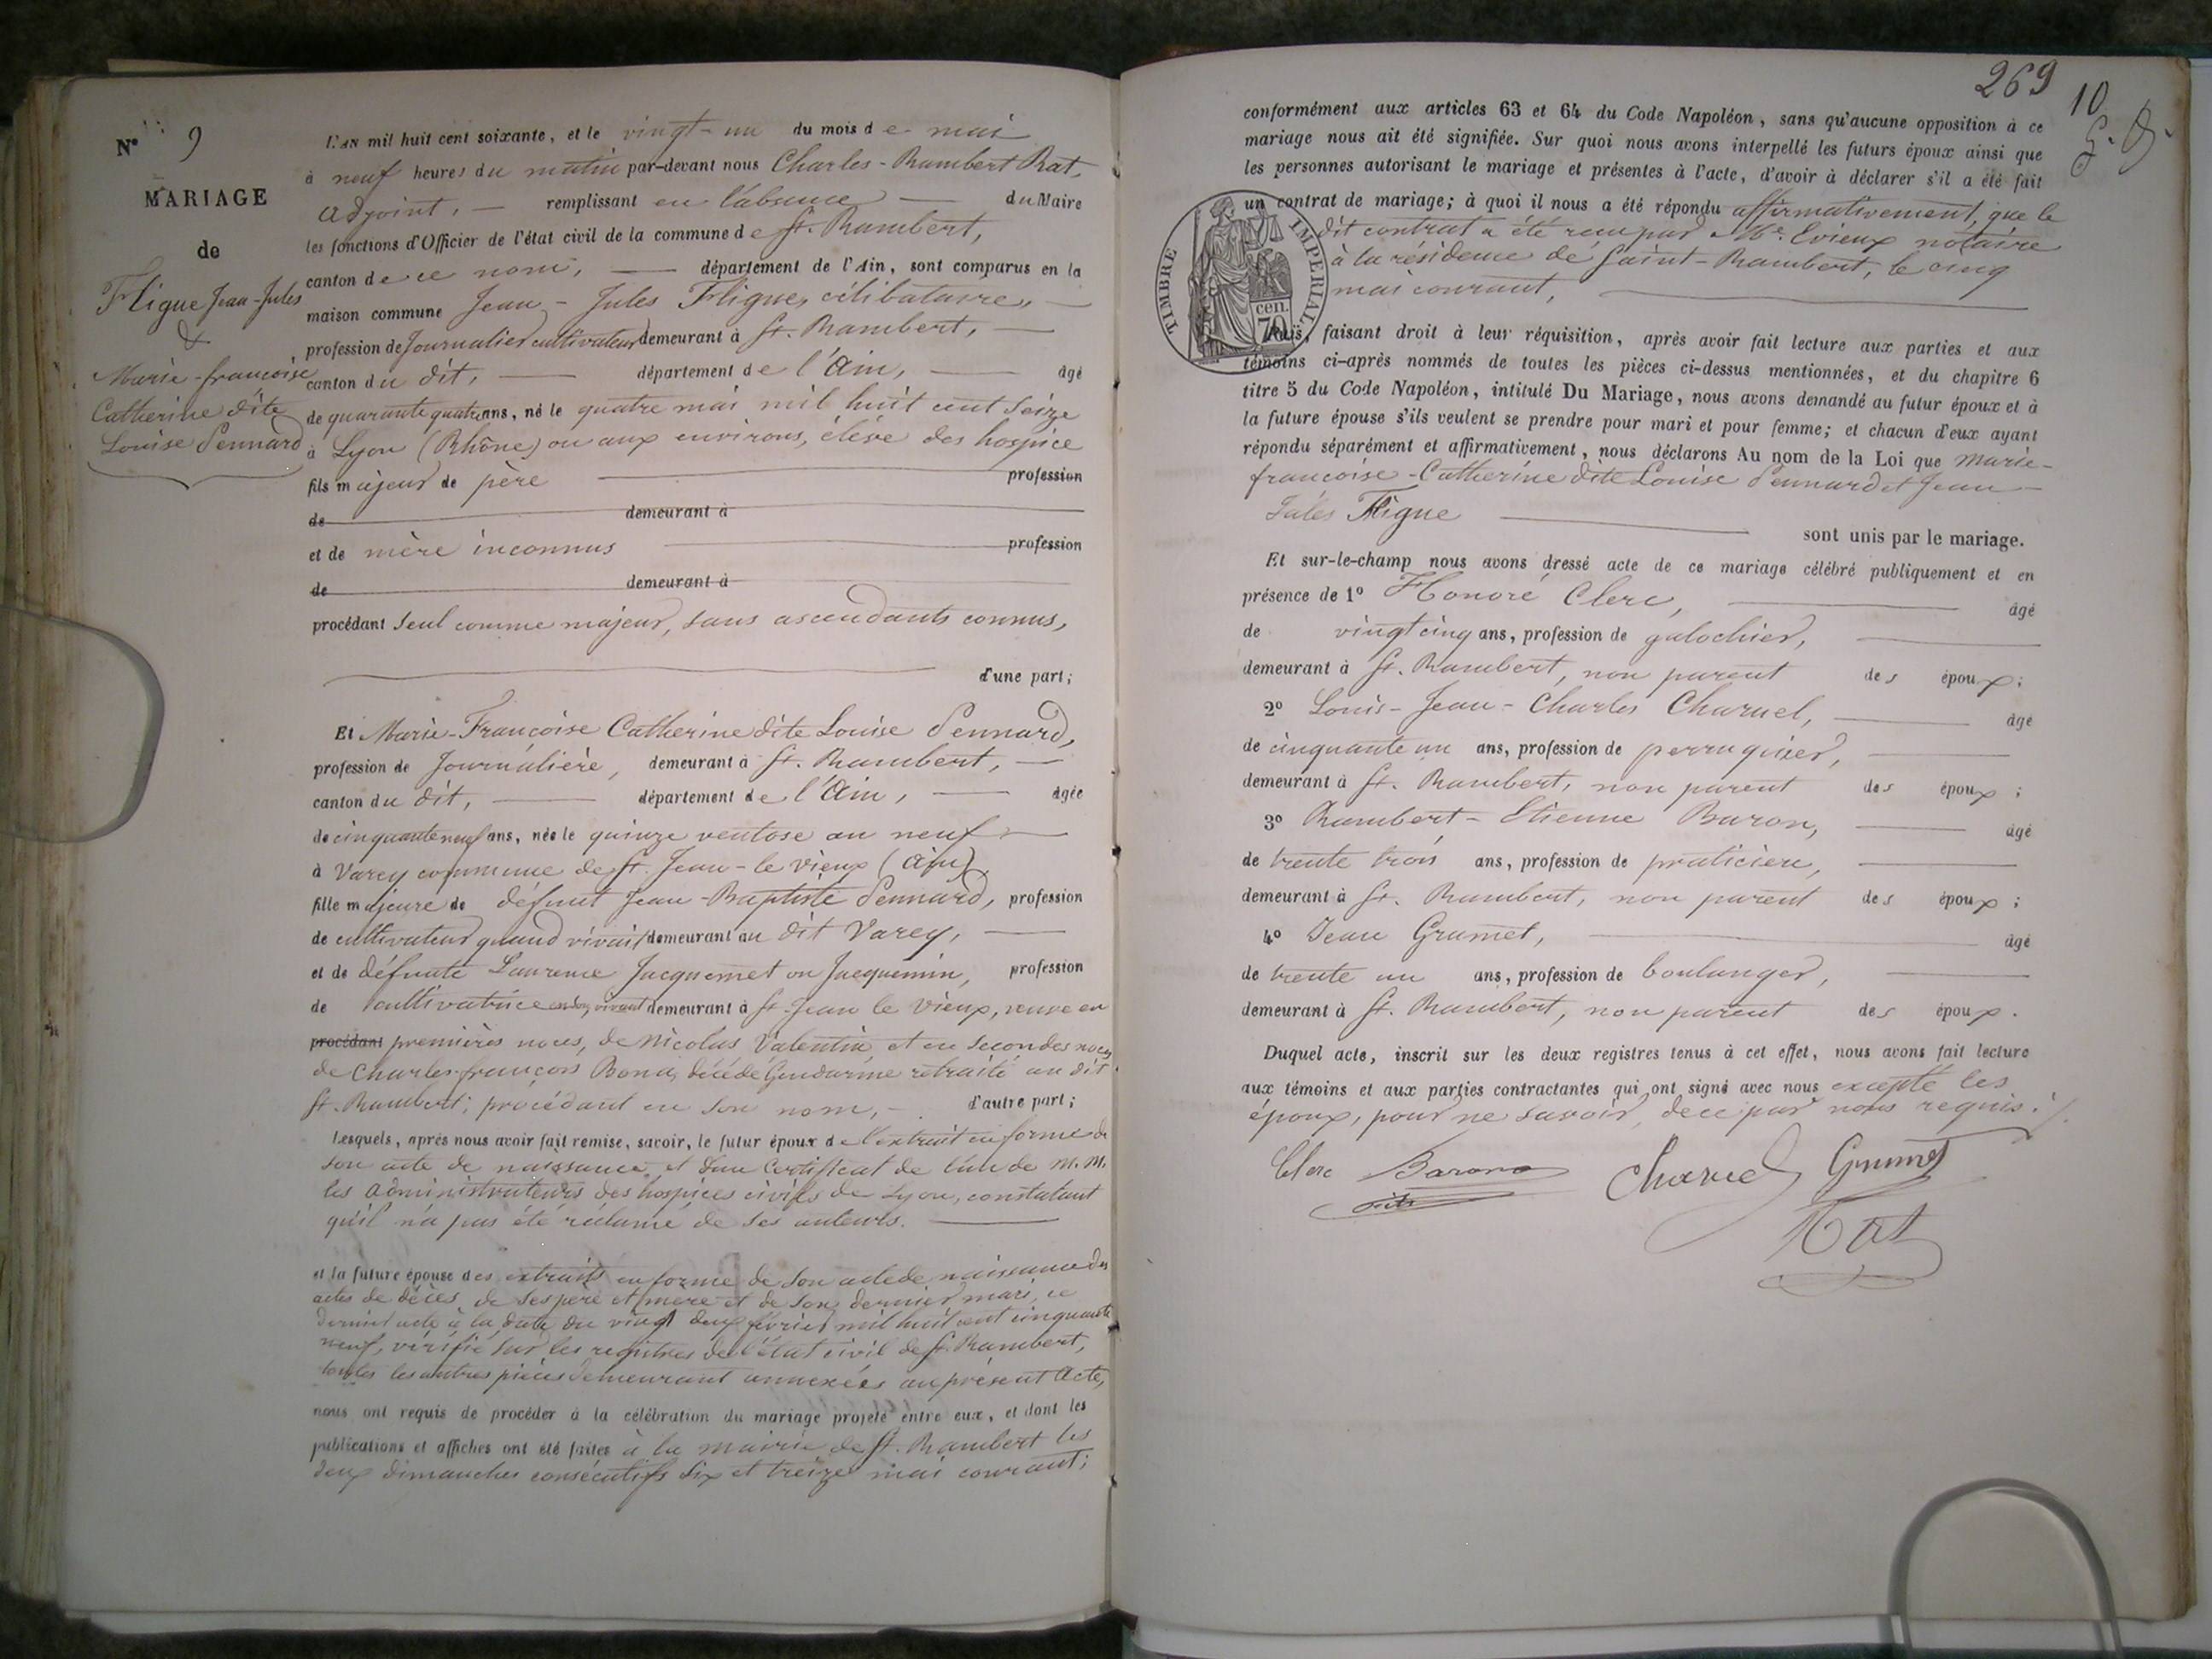 N° 9
MARIAGE
de
Fligue Jean-Jules
&
Marie-françoise
Catherine dite
Louise Pennard
L'AN mil huit cent soixante, et le vingt-un du mois de mai
à neuf heures du matin par-devant nous Charles-Rambert Rat,
adjoint, — remplissant en l'absence — du Maire
les fonctions d'Officier de l'état civil de la commune de St. Rambert,
canton de ce nom, — département de l'Ain, sont comparus en la
maison commune Jean-Jules Fligue, célibataire, —
profession de Journalier cultivateur demeurant à St. Rambert, —
canton du dit, — département de l'Ain, — âgé
de quarante quatre ans, né le quatre mai mil huit cent seize
à Lyon (Rhône) ou aux environs, élève des hospice
fils majeur de père — profession
de — demeurant à —
et de mère inconnus — profession
de — demeurant à —
procédant seul comme majeur, sans ascendants connus,
— d'une part;
Et Marie-Françoise Catherine dite Louise Pennard,
profession de Journalière, demeurant à St. Rambert, —
canton du dit, — département de l'Ain, — âgée
de cinquante neuf ans, née le quinze ventose an neuf —
à Varey commune de St. Jean-le vieux (Ain)
fille majeure de défunt Jean-Baptiste Pennard, profession
de cultivateur quand vivait demeurant au dit Varey, —
et de défunte Laurence Jacquemet ou Jacquemin, profession
de cultivatrice en son vivant demeurant à St. Jean le Vieux, veuve en
procédant premières noces, de Nicolas Valentin, et en secondes noces
de Charles-françois Bona, décédé Gendarme retraité au dit
St. Rambert; procédant en son nom, — d'autre part;
Lesquels, après nous avoir fait remise, savoir, le futur époux de l'extrait en forme de
son acte de naissance et d'un Certificat de l'un de M.M.
les administrateurs des hospices civils de Lyon, constatant
qu'il n'a pas été réclamé de ses auteurs. —
et la future épouse des extraits en forme de son acte de naissance des
actes de décès de ses père et mère et de son dernier mari, ce
dernier acte à la date du vingt deux février mil huit cent cinquante
neuf, vérifié sur les registres de l'état civil de St. Rambert,
toutes les autres pièces demeurant annexées au présent acte,
nous ont requis de procéder à la célébration du mariage projeté entre eux, et dont les
publications et affiches ont été faites à la mairie de St. Rambert les
deux dimanches consécutifs six et treize mai courant;
269
10
conformément aux articles 63 et 64 du Code Napoléon, sans qu'aucune opposition à ce
mariage nous ait été signifiée. Sur quoi nous avons interpellé les futurs époux ainsi que
les personnes autorisant le mariage et présentes à l'acte, d'avoir à déclarer s'il a été fait
un contrat de mariage; à quoi il nous a été répondu affirmativement, que le
dit contrat a été reçu par Me. Evieux notaire
à la résidence de Saint-Rambert, le cinq
mai courant, —
TIMBRE IMPERIAL
70 cen.
Puis, faisant droit à leur réquisition, après avoir fait lecture aux parties et aux
témoins ci-après nommés de toutes les pièces ci-dessus mentionnées, et du chapitre 6
titre 5 du Code Napoléon, intitulé Du Mariage, nous avons demandé au futur époux et à
la future épouse s'ils veulent se prendre pour mari et pour femme; et chacun d'eux ayant
répondu séparément et affirmativement, nous déclarons Au nom de la Loi que Marie-
françoise-Catherine dite Louise Pennard et Jean
Jules Fligue — sont unis par le mariage.
Et sur-le-champ nous avons dressé acte de ce mariage célébré publiquement et en
présence de 1° Honoré Clerc, — âgé
de vingt cinq ans, profession de galochier, —
demeurant à St. Rambert, non parent des époux;
2° Louis-Jean-Charles Charuel, — âgé
de cinquante un ans, profession de perruquier, —
demeurant à St. Rambert, non parent des époux;
3° Rambert-Etienne Baron, — âgé
de trente trois ans, profession de praticien, —
demeurant à St. Rambert, non parent des époux;
4° Jean Grumet, — âgé
de trente un ans, profession de boulanger, —
demeurant à St. Rambert, non parent des époux.
Duquel acte, inscrit sur les deux registres tenus à cet effet, nous avons fait lecture
aux témoins et aux parties contractantes qui ont signé avec nous excepté les
époux, pour ne savoir, de ce par nous requis.
Clerc Baron Charuel Grumet
Rat